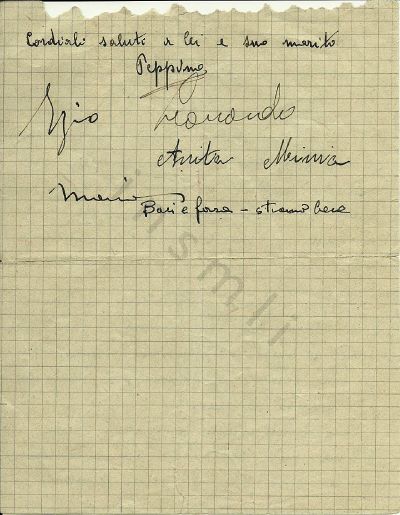 Cordiali saluti a lei e suo marito
Peppino
Ezio Leonardo
Anita Meinia
Mario
Baci e forza - stiamo bene
insmli